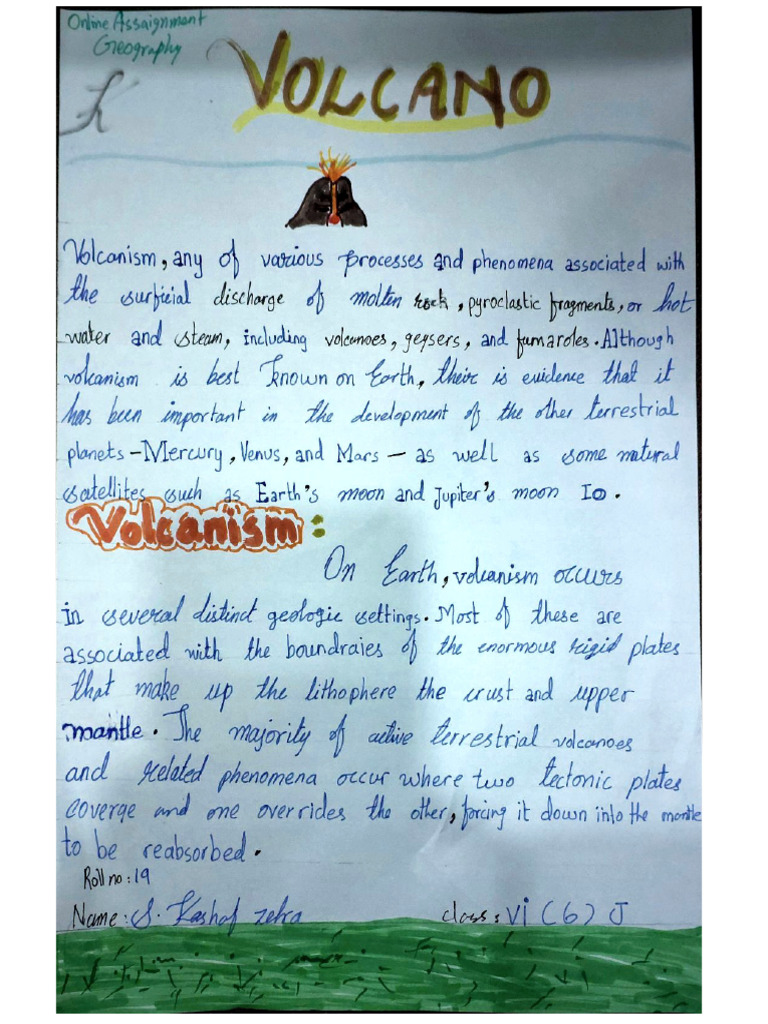 Online Assaignment
Geography
K
VOLCANO
Volcanism, any of various processes and phenomena associated with
the surficial discharge of molten rock, pyroclastic fragments, or hot
water and steam, including volcanoes, geysers, and fumaroles. Although
volcanism is best known on Earth, their is evidence that it
has been important in the development of the other terrestrial
planets – Mercury, Venus, and Mars – as well as some natural
satellites such as Earth's moon and Jupiter's moon Io.
Volcanism:
On Earth, volcanism occurs
in several distinct geologic settings. Most of these are
associated with the boundraies of the enormous rigid plates
that make up the lithophere the crust and upper
mantle. The majority of active terrestrial volcanoes
and related phenomena occur where two tectonic plates
coverge and one overrides the other, forcing it down into the mantle
to be reabsorbed.
Roll no: 19
Name: S. Kashaf zehra class: vi (6) J